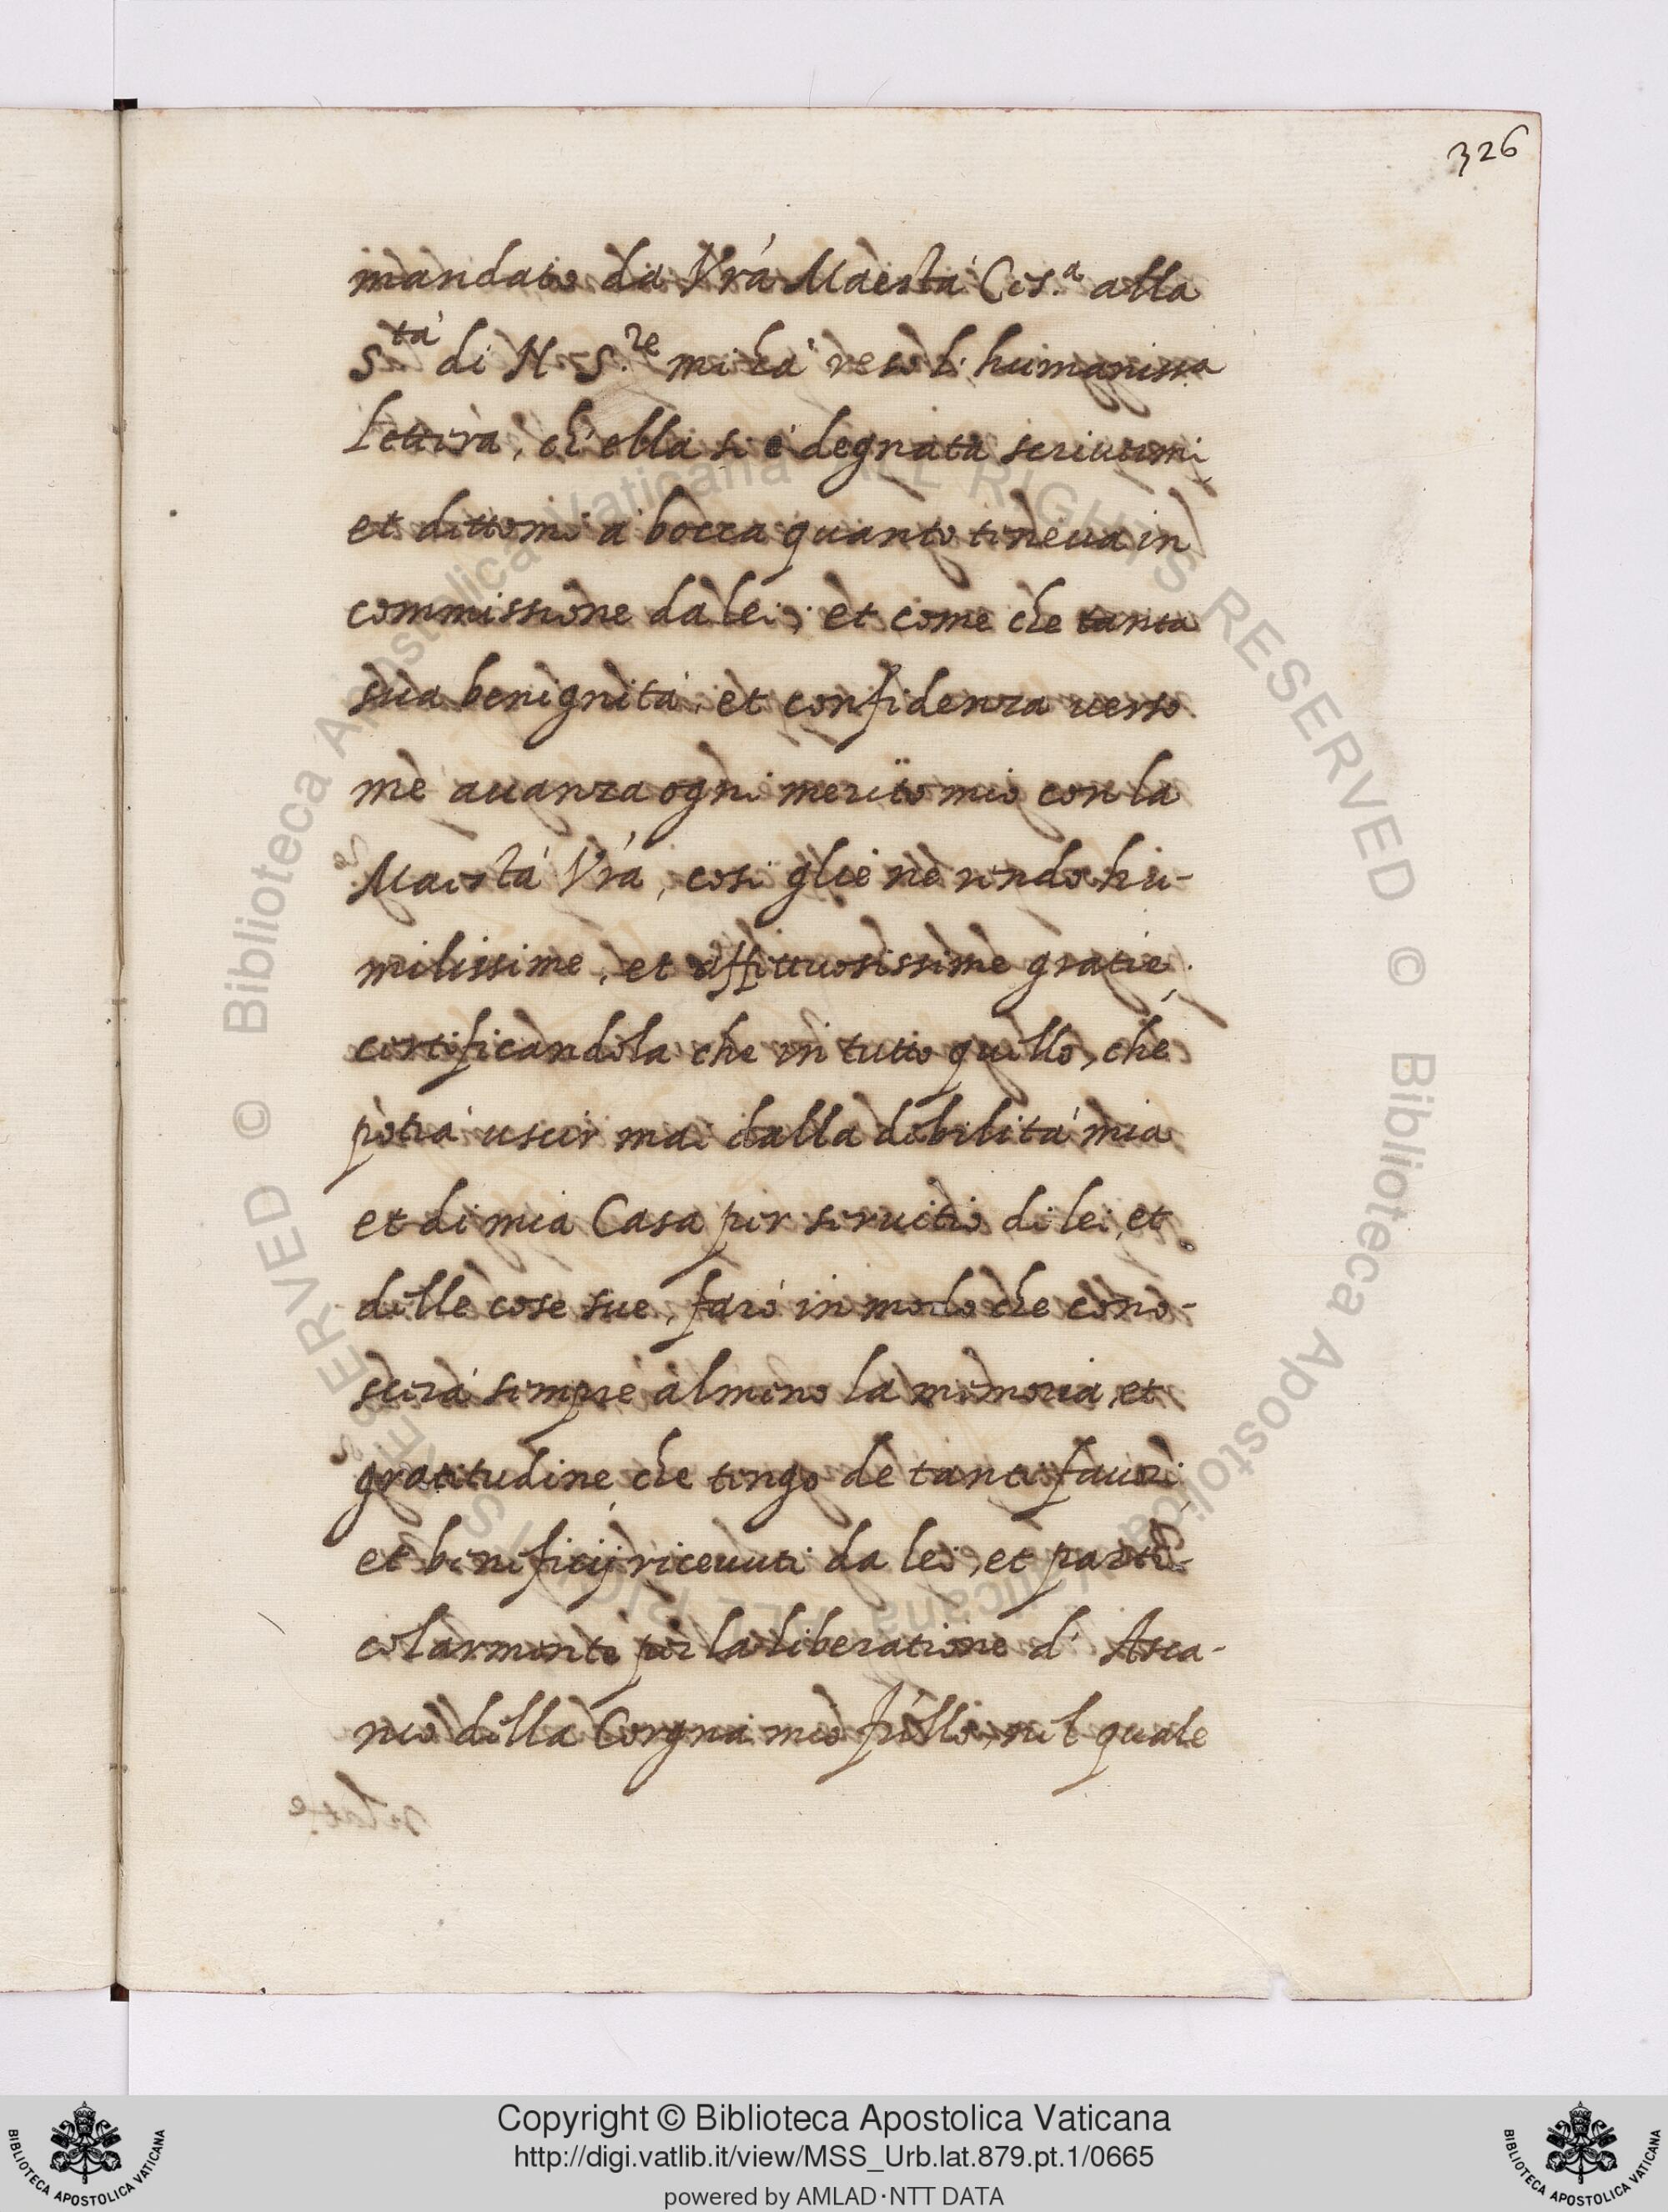 326
mandato da Vrá Maestá Ces.a alla
S.tá di N. S.re mi há reso l'humanissa
lettera, ch'ella si é degnata scriuermi
et dettomi á bocca quanto teneua in
commissione da lei; et come che tanta
sua benignitá, et confidenza uerso
me auanza ogni merito mio con la
Maestá Vrá, cosi gliene rendo hu-
milissime, et affettuosissime gratie
certificandola che in tutto quello, che
potrá uscir mai dalla debilitá mia
et di mia Casa per seruitio di lei, et
delle cose sue, faró in modo che cono-
scerá sempre almeno la memoria, et
gratitudine che tengo de tanti fauori
et beneficij riceuuti da lei, et parti-
colarmente per la liberatione d'Asca-
nio della Corgna mio frello, nel quale
© Biblioteca Apostolica Vaticana ALL RIGHTS RESERVED © Biblioteca Apostolica Vaticana ALL RIGHTS RESERVED
Copyright © Biblioteca Apostolica Vaticana
http://digi.vatlib.it/view/MSS_Urb.lat.879.pt.1/0665
powered by AMLAD·NTT DATA
BIBLIOTECA APOSTOLICA VATICANA
BIBLIOTECA APOSTOLICA VATICANA